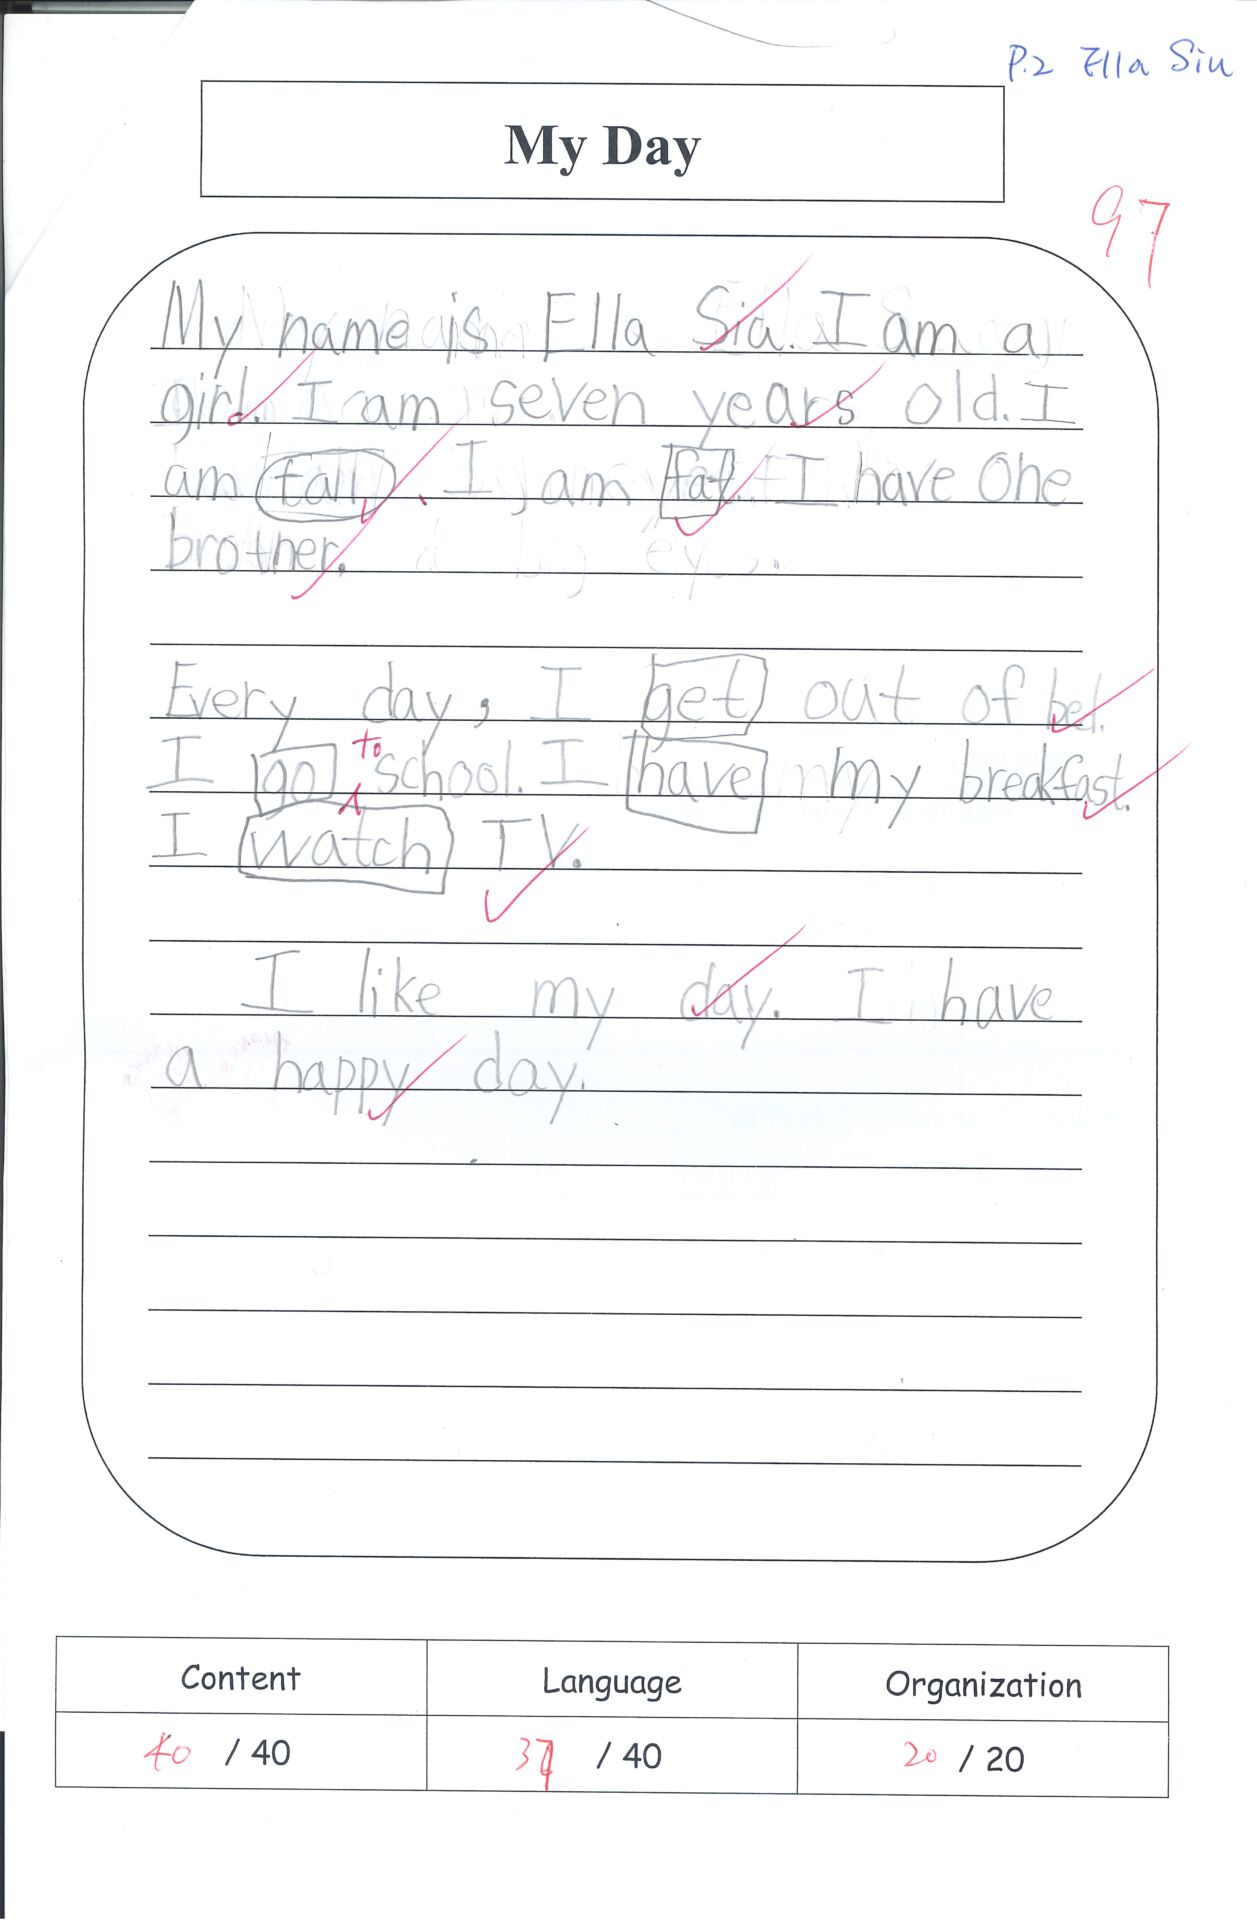 P.2 Ella Siu
My Day
97
My name is Ella Siu. I am a
girl. I am seven years old. I
am tall. I am fat. I have one
brother.
Every day, I get out of bed.
I go to school. I have my breakfast.
I watch TV.
I like my day. I have
a happy day.
Content Language Organization
40 / 40 37 / 40 20 / 20